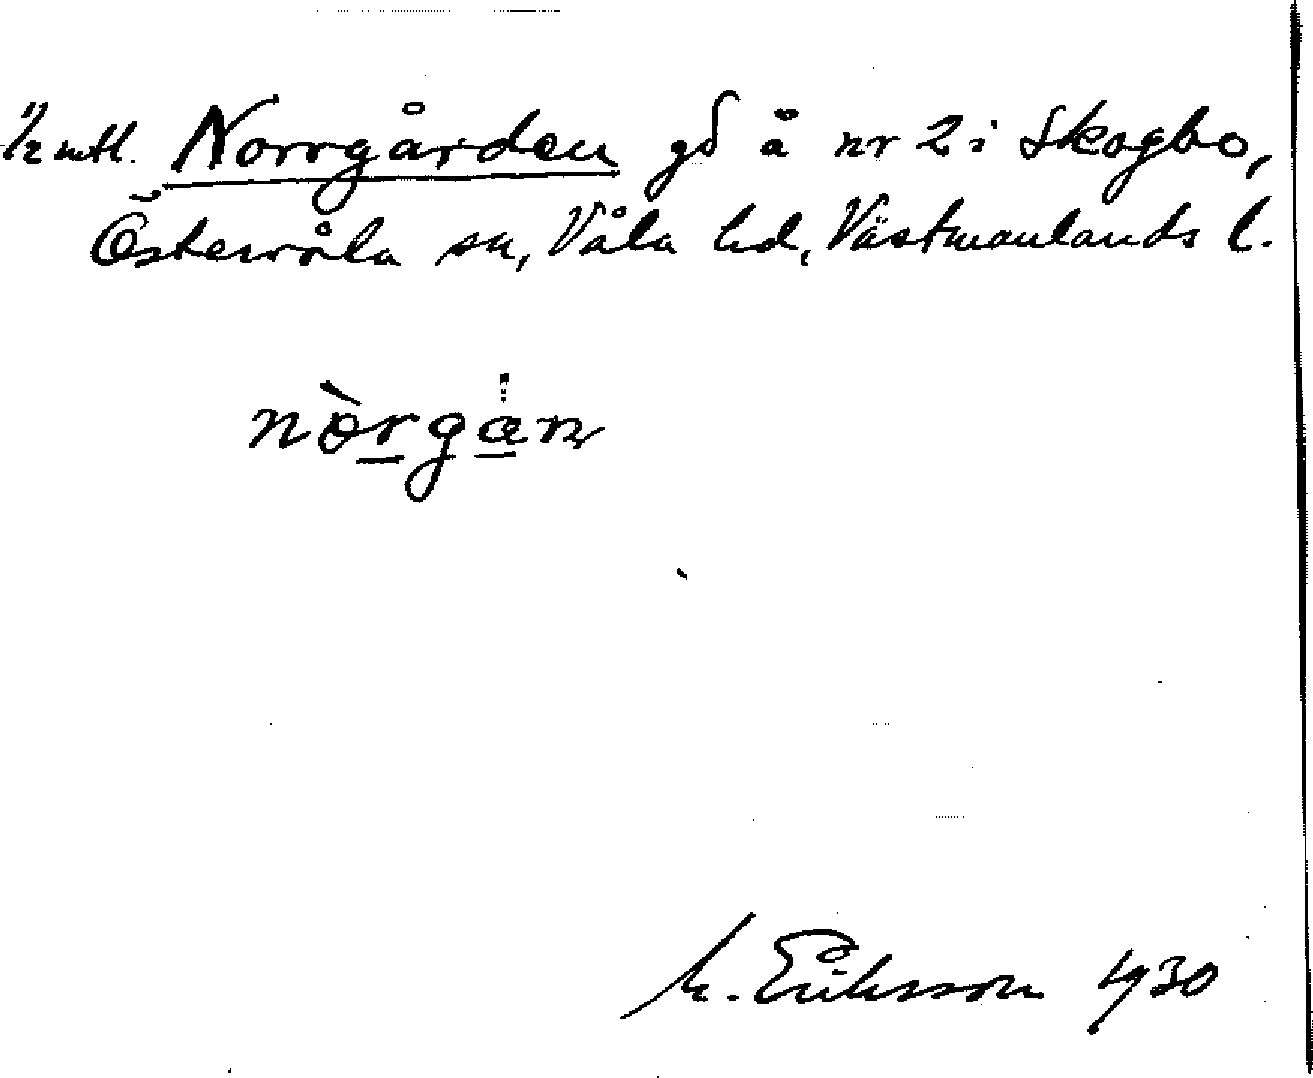 1/2 mtl. Norrgården gd å nr 2 i Skogbo,
Österwåla sn, Våla hd, Västmanlands l.
nòrgån
M. Eriksson 1930